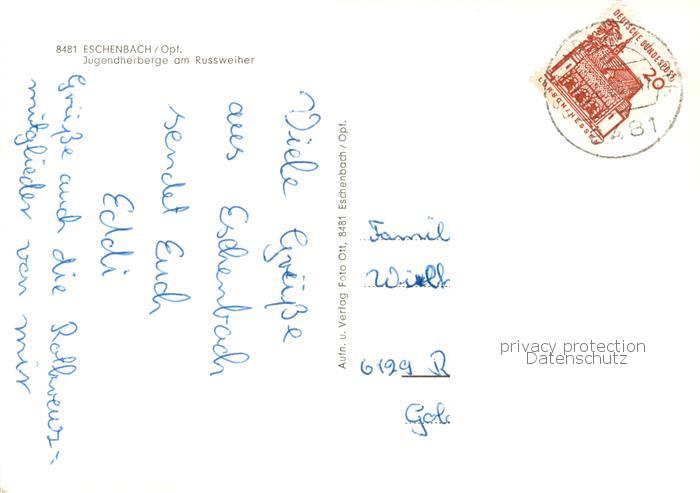 8481 ESCHENBACH / Opf.
Jugendherberge am Russweiher
Viele Grüße
aus Eschenbach
sendet Euch
Eddi
Grüße auch die
mitglieder von mir
Aufn. u. Verlag Foto Ott, 8481 Eschenbach / Opf.
DEUTSCHE BUNDESPOST
20
LORSCH/HESSEN
8481
Famil
6129 R
privacy protection
Datenschutz